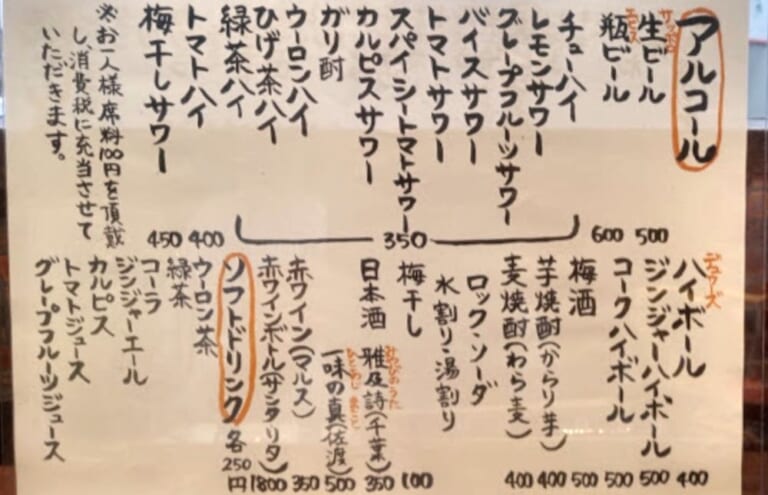 アルコール
サッポロ
生ビール 500
エビス
瓶ビール 600
チューハイ
レモンサワー
グレープフルーツサワー
バイスサワー
トマトサワー
スパイシートマトサワー
カルピスサワー
ガリ酎
ウーロンハイ
ひげ茶ハイ
350
緑茶ハイ
トマトハイ 400
梅干しサワー 450
※お一人様席料100円を頂戴
し、消費税に充当させて
いただきます。
デュワーズ
ハイボール 400
ジンジャーハイボール 500
コークハイボール 500
梅酒 500
芋焼酎(からり芋) 400
麦焼酎(わら麦) 400
ロック・ソーダ
水割り・湯割り
梅干し 100
日本酒
みやびのうた
雅な詩(千葉) 350
一味の真(佐渡) 500
赤ワイン(マルス) 350
赤ワインボトル(サンタリタ) 1800
ソフトドリンク 各250円
ウーロン茶
緑茶
コーラ
ジンジャーエール
カルピス
トマトジュース
グレープフルーツジュース